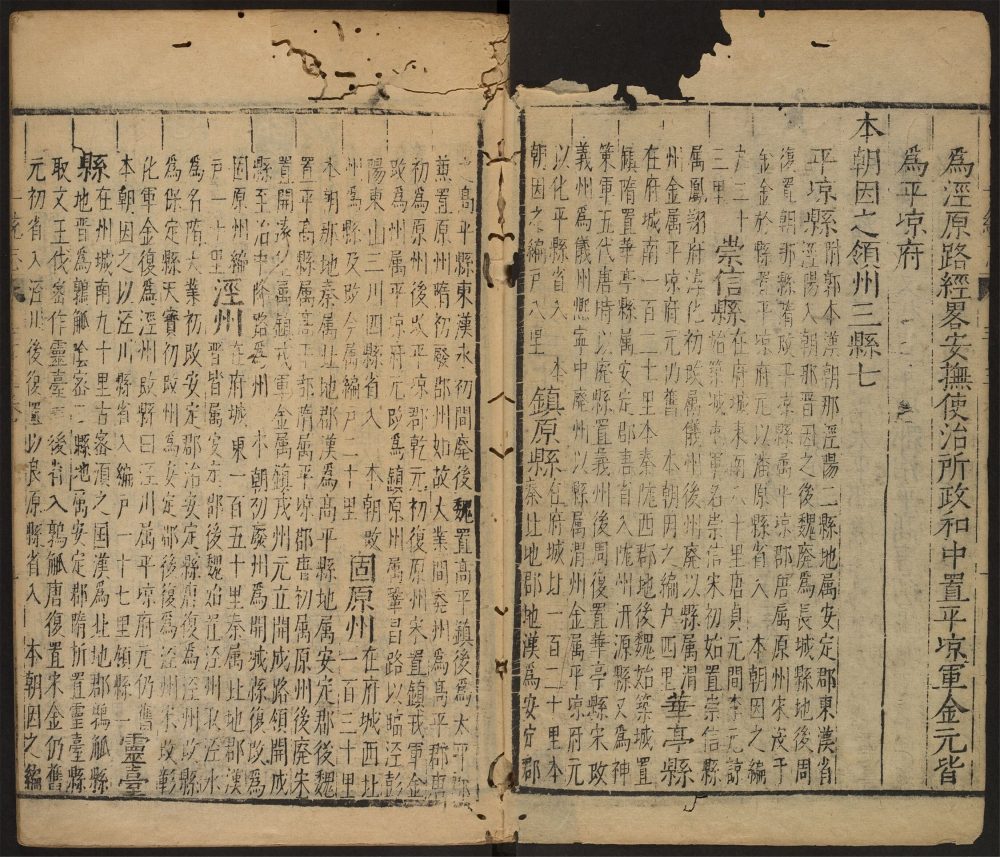 為涇原路經畧安撫使治所政和中置平凉軍金元皆
為平凉府
本朝因之領州三縣七
平凉縣附郭本漢朝那涇陽二縣地屬安定郡東漢省
復置朝那縣涇陽入朝那晋因之後魏廢為長城縣地後周
金於縣置平凉府元以潘原縣省入 本朝因之編
户三十 崇信縣在府城東南 十里唐貞元間李元諒
三里 始築城 軍名崇信宋初始置崇信縣
屬鳳翔府淳化初改屬儀州後州廢以縣屬渭
州金屬平凉府元仍舊 本朝因之編户四里 華亭縣
在府城南一百二十里本秦隴西郡地後魏始築城置
鎮隋置華亭縣屬安定郡唐省入隴州汧源縣又為神
策軍五代唐時以廢縣置義州後周復置華亭縣宋改
義州為儀州熙寧中廢州以縣屬渭州金屬平凉府元
以化平縣省入 鎮原縣在府城北一百二十里本
朝因之編户八里 秦北地郡地漢為安定郡
之高平縣東漢永初間廢後魏置高平鎮後為太平郡
置原州隋初廢郡州如故大業間廢州為高平郡唐
初為原州後改平凉郡乾元初復原州宋置鎮戎軍金
改為州屬平凉府元改為鎮原州屬鞏昌路以臨涇彭
陽東山三川四縣省入 本朝改 固原州在府城西北
州為縣及改今屬編户二十里 一百三十里
本朝那地秦屬北地郡漢為高平縣地屬安定郡後魏
置平高縣屬高平郡隋屬平凉郡唐初屬原州後廢宋
置開遠堡屬鎮戎軍金屬鎮戎州元立開成路領開成
縣至治中降路為州 本朝初廢州為開城縣復改為
固原州編 涇州在府城東一百五十里秦屬北地郡漢
户一十里 晋皆属安定郡後魏始置涇州取涇水
為名隋大業初改安定郡治安定縣唐復為涇州改
為保定縣天寶初改州為安定郡後復為涇州宋改彰
化軍金復為涇州改縣曰涇川属平凉府元仍舊
本朝因之以涇川縣省入編户一十七里領縣一 靈臺
縣在州城南九十里古密須之国漢為北地郡鶉觚縣
地晋為鶉觚陰密二縣地属安定郡隋析置靈臺縣
取文王伐密作靈臺 後省入鶉觚唐復置宋金仍舊
元初省入涇川後復置以良原縣省入 本朝因之編